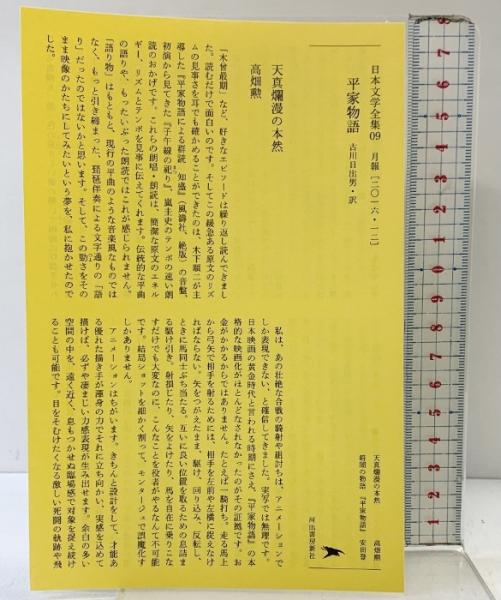 日本文学全集09 月報(二〇一六・一二)
平家物語 古川日出男・訳
天真爛漫の本然 高畑勲
時間の物語『平家物語』 安田登
河出書房新社
天真爛漫の本然
高畑勲
「木曾最期」など、好きなエピソードは繰り返し読んできまし
た。読むだけで面白いのです。そしてこの緩急ある原文のリズ
ムの見事さを耳でも確かめることができたのは、木下順二が主
導した『平家物語による群読 知盛』(風濤社、絶版)の音盤、
初演から見てきた『子午線の祀り』、嵐圭史のテンポの速い朗
読のおかげです。これらの朗唱・朗読は、簡潔な原文のエネル
ギー、リズムとテンポを見事に伝えてくれます。伝統的な平曲
の語りや、もったいぶった朗読ではこれが感じられません。
「語り物」はもともと、現行の平曲のような音楽風なものでは
なく、もっと引き締まった、琵琶伴奏による文字通りの「語
り」だったのではないかと思います。そして、この勁さをその
まま映像のかたちにしてみたいという夢を、私に抱かせたので
した。
私は、あの壮絶な合戦の騎射や組討ちは、アニメーションで
しか表現できない、と確信してきました。実写では無理です。
日本映画の黄金時代と言われる時期にさえ、『平家物語』の本
格的な映画化がほとんどなされなかったのがその証拠です。お
金がかかるからではありません。たとえば一騎打ち。走る馬上
から弓矢で相手を射るためには、相手を左前や左横に捉えなけ
ればならない。矢をつがえたまま、駆け、回り込み、反転し、
ときに馬同士ぶち当たる。互いに良い位置を取るための息詰ま
る駆け引き。射損じたり、矢をよけたり。馬を自在に乗りこな
すだけでも大変なのに、こんなことを役者がやるなんて不可能
です。結局ショットを細かく割って、モンタージュで誤魔化す
しかありません。
アニメーションはちがいます。きちんと設計をして、才能あ
る優れた描き手が渾身の力でそれに立ち向かい、実感を込めて
描けば、必ずや凄まじい力感表現が生み出せます。余白の多い
空間の中を、遠く近く、息もつかせぬ臨場感で対象を捉え続け
ることも可能です。目をそむけたくなる激しい死闘の軌跡や飛
1 2 3 4 5 6 7 8 9 10 1 2 3 4 5 6 7 8